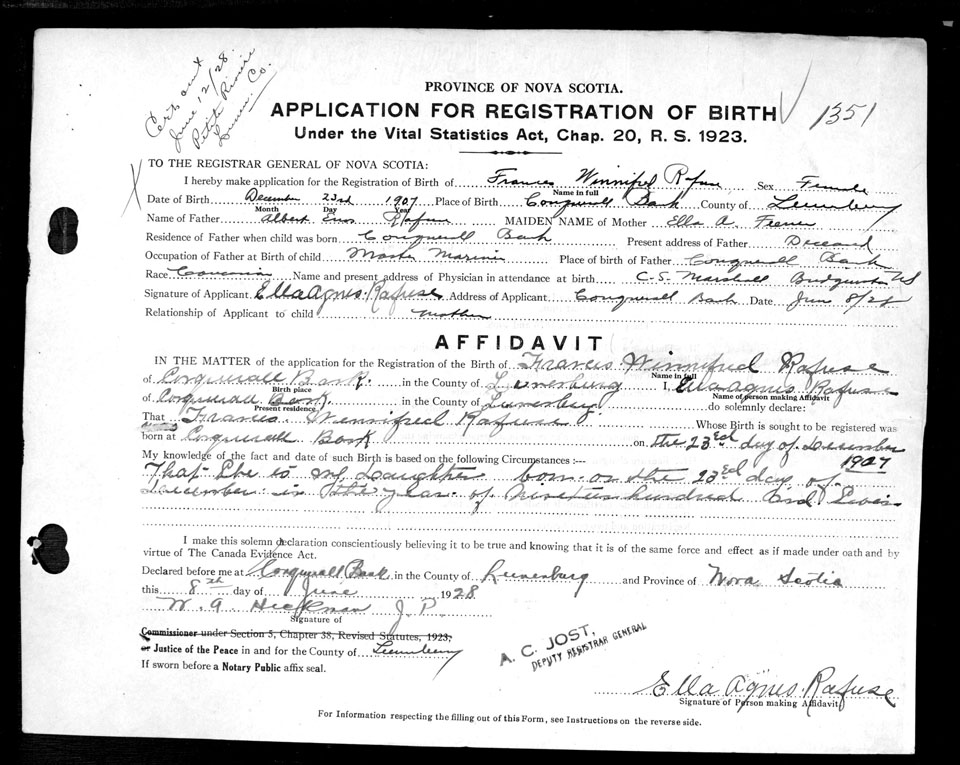 Cert sent
June 12/28.
Petite Riviere
Lunen. Co.
PROVINCE OF NOVA SCOTIA.
APPLICATION FOR REGISTRATION OF BIRTH 1351
Under the Vital Statistics Act, Chap. 20, R. S. 1923.
TO THE REGISTRAR GENERAL OF NOVA SCOTIA:
I hereby make application for the Registration of Birth of Frances Winnifred Rafuse Sex Female
Name in full
Date of Birth December 23rd 1907 Place of Birth Conquerall Bank County of Lunenburg
Month Day Year
Name of Father Albert Rafuse MAIDEN NAME of Mother Ella A.
Residence of Father when child was born Conquerall Bank Present address of Father Deceased
Occupation of Father at Birth of child Master Mariner Place of birth of Father Conquerall Bank
Race Name and present address of Physician in attendance at birth C. S. Marshall Bridgewater NS
Signature of Applicant Ella Agnes Rafuse Address of Applicant Conquerall Bank Date June 8/28
Relationship of Applicant to child Mother
AFFIDAVIT
IN THE MATTER of the application for the Registration of the Birth of Francis Winnifred Rafuse
Name in full
of Conquerall Bank. in the County of Lunenburg I, Ella Agnes Rafuse
Birth place Name of person making Affidavit
of Conquerall Bank. in the County of Lunenburg. do solemnly declare:
Present residence.
That Francis Winnifred Rafuse Whose Birth is sought to be registered was
born at Conquerall Bank on the 23rd day of December
My knowledge of the fact and date of such Birth is based on the following Circumstances :— 1907
That She is my Daughter born on the 23rd day of
December in the year of Nineteen hundred and Seven
I make this solemn declaration conscientiously believing it to be true and knowing that it is of the same force and effect as if made under oath and by
virtue of The Canada Evidence Act.
Declared before me at Conquerall Bank in the County of Lunenburg and Province of Nova Scotia
this 8th day of June 1928
W. A. Hickman J. P.
Signature of
Commissioner under Section 5, Chapter 38, Revised Statutes, 1923,
or Justice of the Peace in and for the County of Lunenburg
If sworn before a Notary Public affix seal.
A. C. JOST,
DEPUTY REGISTRAR GENERAL
Ella Agnes Rafuse
Signature of Person making Affidavit
For Information respecting the filling out of this Form, see Instructions on the reverse side.